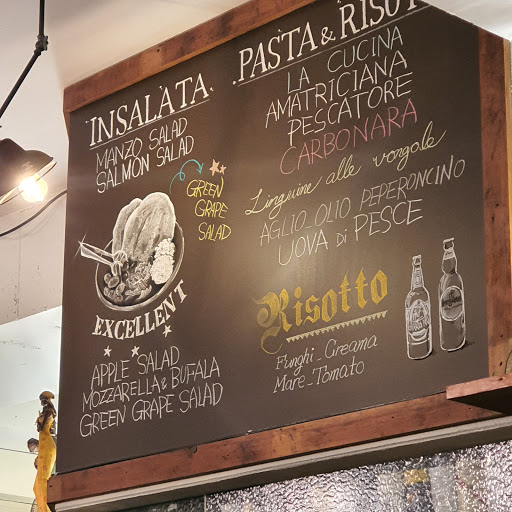 INSALATA
MANZO SALAD
SALMON SALAD
GREEN
GRAPE
SALAD
EXCELLENT
APPLE SALAD
MOZZARELLA & BUFALA
GREEN GRAPE SALAD
PASTA & RISOT
LA CUCINA
AMATRICIANA
PESCATORE
CARBONARA
Linguine alle vorgole
AGLIO OLIO PEPERONCINO
UOVA di PESCE
Risotto
Funghi - Creama
Mare - Tomato